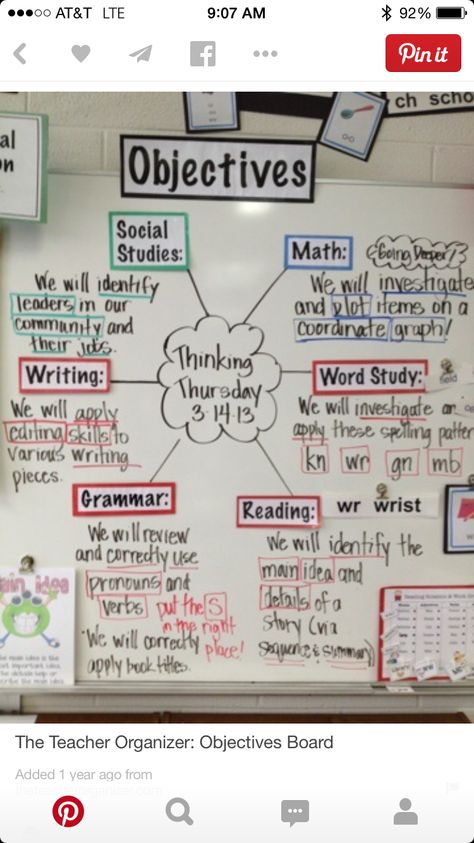 AT&T LTE
9:07 AM
92%
Pin it
al
n
ch scho
Objectives
Social
Studies:
We will identify
leaders in our
community and
their jobs.
Math:
Going Deeper!
We will investigate
and plot items on a
coordinate graph!
Thinking
Thursday
3-14-13
Writing:
We will apply
editing skills to
various writing
pieces.
Word Study:
field
We will investigate an
apply these spelling patter
kn wr gn mb
Grammar:
We will review
and correctly use
pronouns and
verbs put the S
in the right
place!
We will correctly
apply book titles.
Reading:
wr wrist
We will identify the
main idea and
details of a
story (via
sequence & summary)
ain idea
The Teacher Organizer: Objectives Board
Added 1 year ago from
theteacherorganizer.com